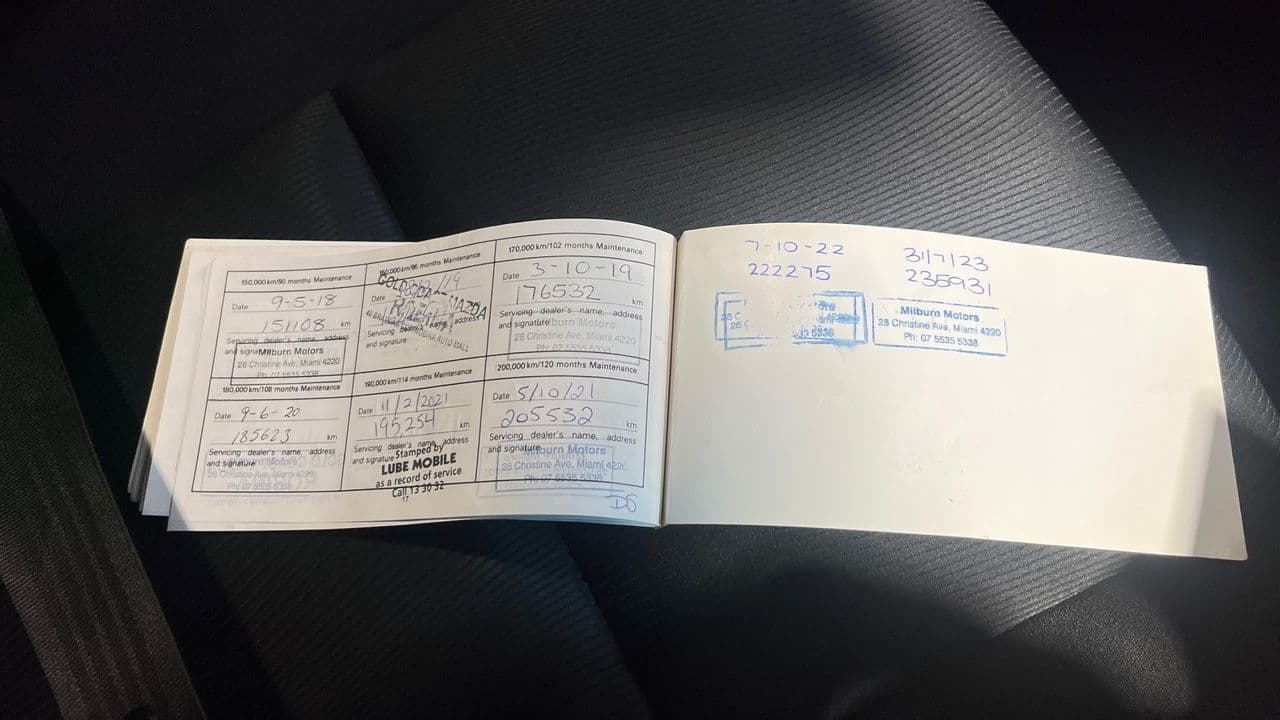 150,000 km/90 months Maintenance
Date 9-5-18
151108 km
Servicing dealer's name, address
and signature
Milburn Motors
28 Christine Ave, Miami 4220
Ph: 07 5535 5338
160,000 km/96 months Maintenance
Date
GOLD COAST MAZDA
AUTO MALL
Servicing dealer's name, address
and signature
170,000 km/102 months Maintenance
Date 3-10-19
176532 km
Servicing dealer's name, address
and signature
Milburn Motors
28 Christine Ave, Miami 4220
Ph: 07 5535 5338
180,000 km/108 months Maintenance
Date 9-6-20
185623 km
Servicing dealer's name, address
and signature
Milburn Motors
28 Christine Ave, Miami 4220
Ph: 07 5535 5338
190,000 km/114 months Maintenance
Date 11/2/2021
195254 km
Servicing dealer's name, address
and signature
Stamped by
LUBE MOBILE
as a record of service
Call 13 30 32
17
200,000 km/120 months Maintenance
Date 5/10/21
205532 km
Servicing dealer's name, address
and signature
Milburn Motors
28 Christine Ave, Miami 4220
Ph: 07 5535 5338
DS
7-10-22
222275
31/7/23
235931
Milburn Motors
28 Christine Ave, Miami 4220
Ph: 07 5535 5338